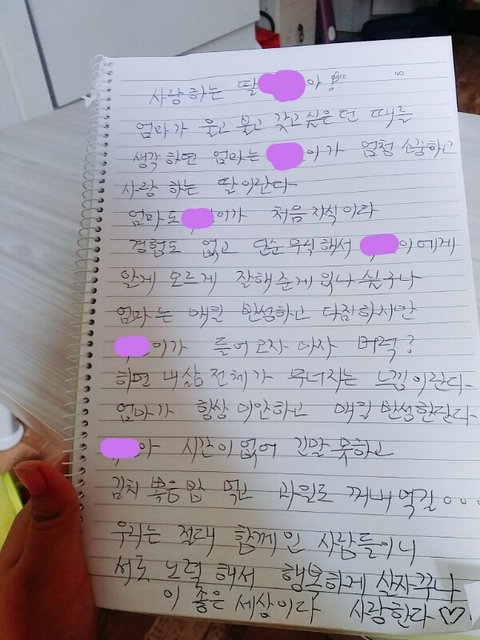 사랑하는 딸 아!
DATE NO
엄마가 울고 불고 갖고싶은 던 때를
생각하면 엄마는 이가 엄청 소중하고
사랑 하는 딸이란다
엄마도 이가 처음 자식이라
경험도 없고 단순 무식해서 이에게
알게 모르게 잘해준게 있나 싶구나
엄마는 매일 반성하고 다짐하지만
이가 들어오자 마자 버럭?
하면 내 삶 전체가 무너지는 느낌이란다
엄마가 항상 미안하고 매일 반성한단다
아 시간이 없어 긴말 못하고
김치 볶음밥 먹고 과일도 꺼내 먹길...
우리는 절대 함께인 사람들이니
서로 노력해서 행복하게 살자꾸나
이 좋은 세상이다 사랑한다♡